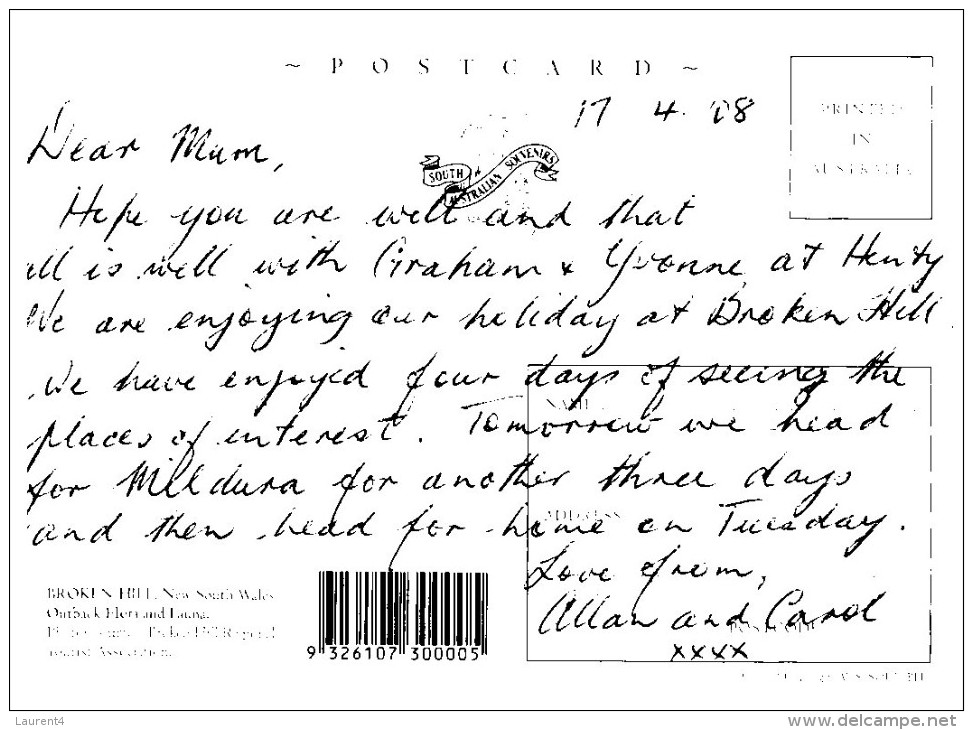 ~ POSTCARD ~
17 4. '08
PRINTED
IN
AUSTRALIA
SOUTH AUSTRALIAN SOUVENIRS
Dear Mum,
Hope you are well and that
all is well with Graham & Yvonne at Henty
We are enjoying our holiday at Broken Hill
We have enjoyed four days of seeing the
places of interest. Tomorrow we head
for Mildura for another three days
and then head for home on Tuesday.
Love from,
Allan and Carol
xxxx
NAME
ADDRESS
BROKEN HILL, New South Wales
Outback Flora and Fauna.
Tourist Association.
9 326107 300005
Laurent4
www.delcampe.net